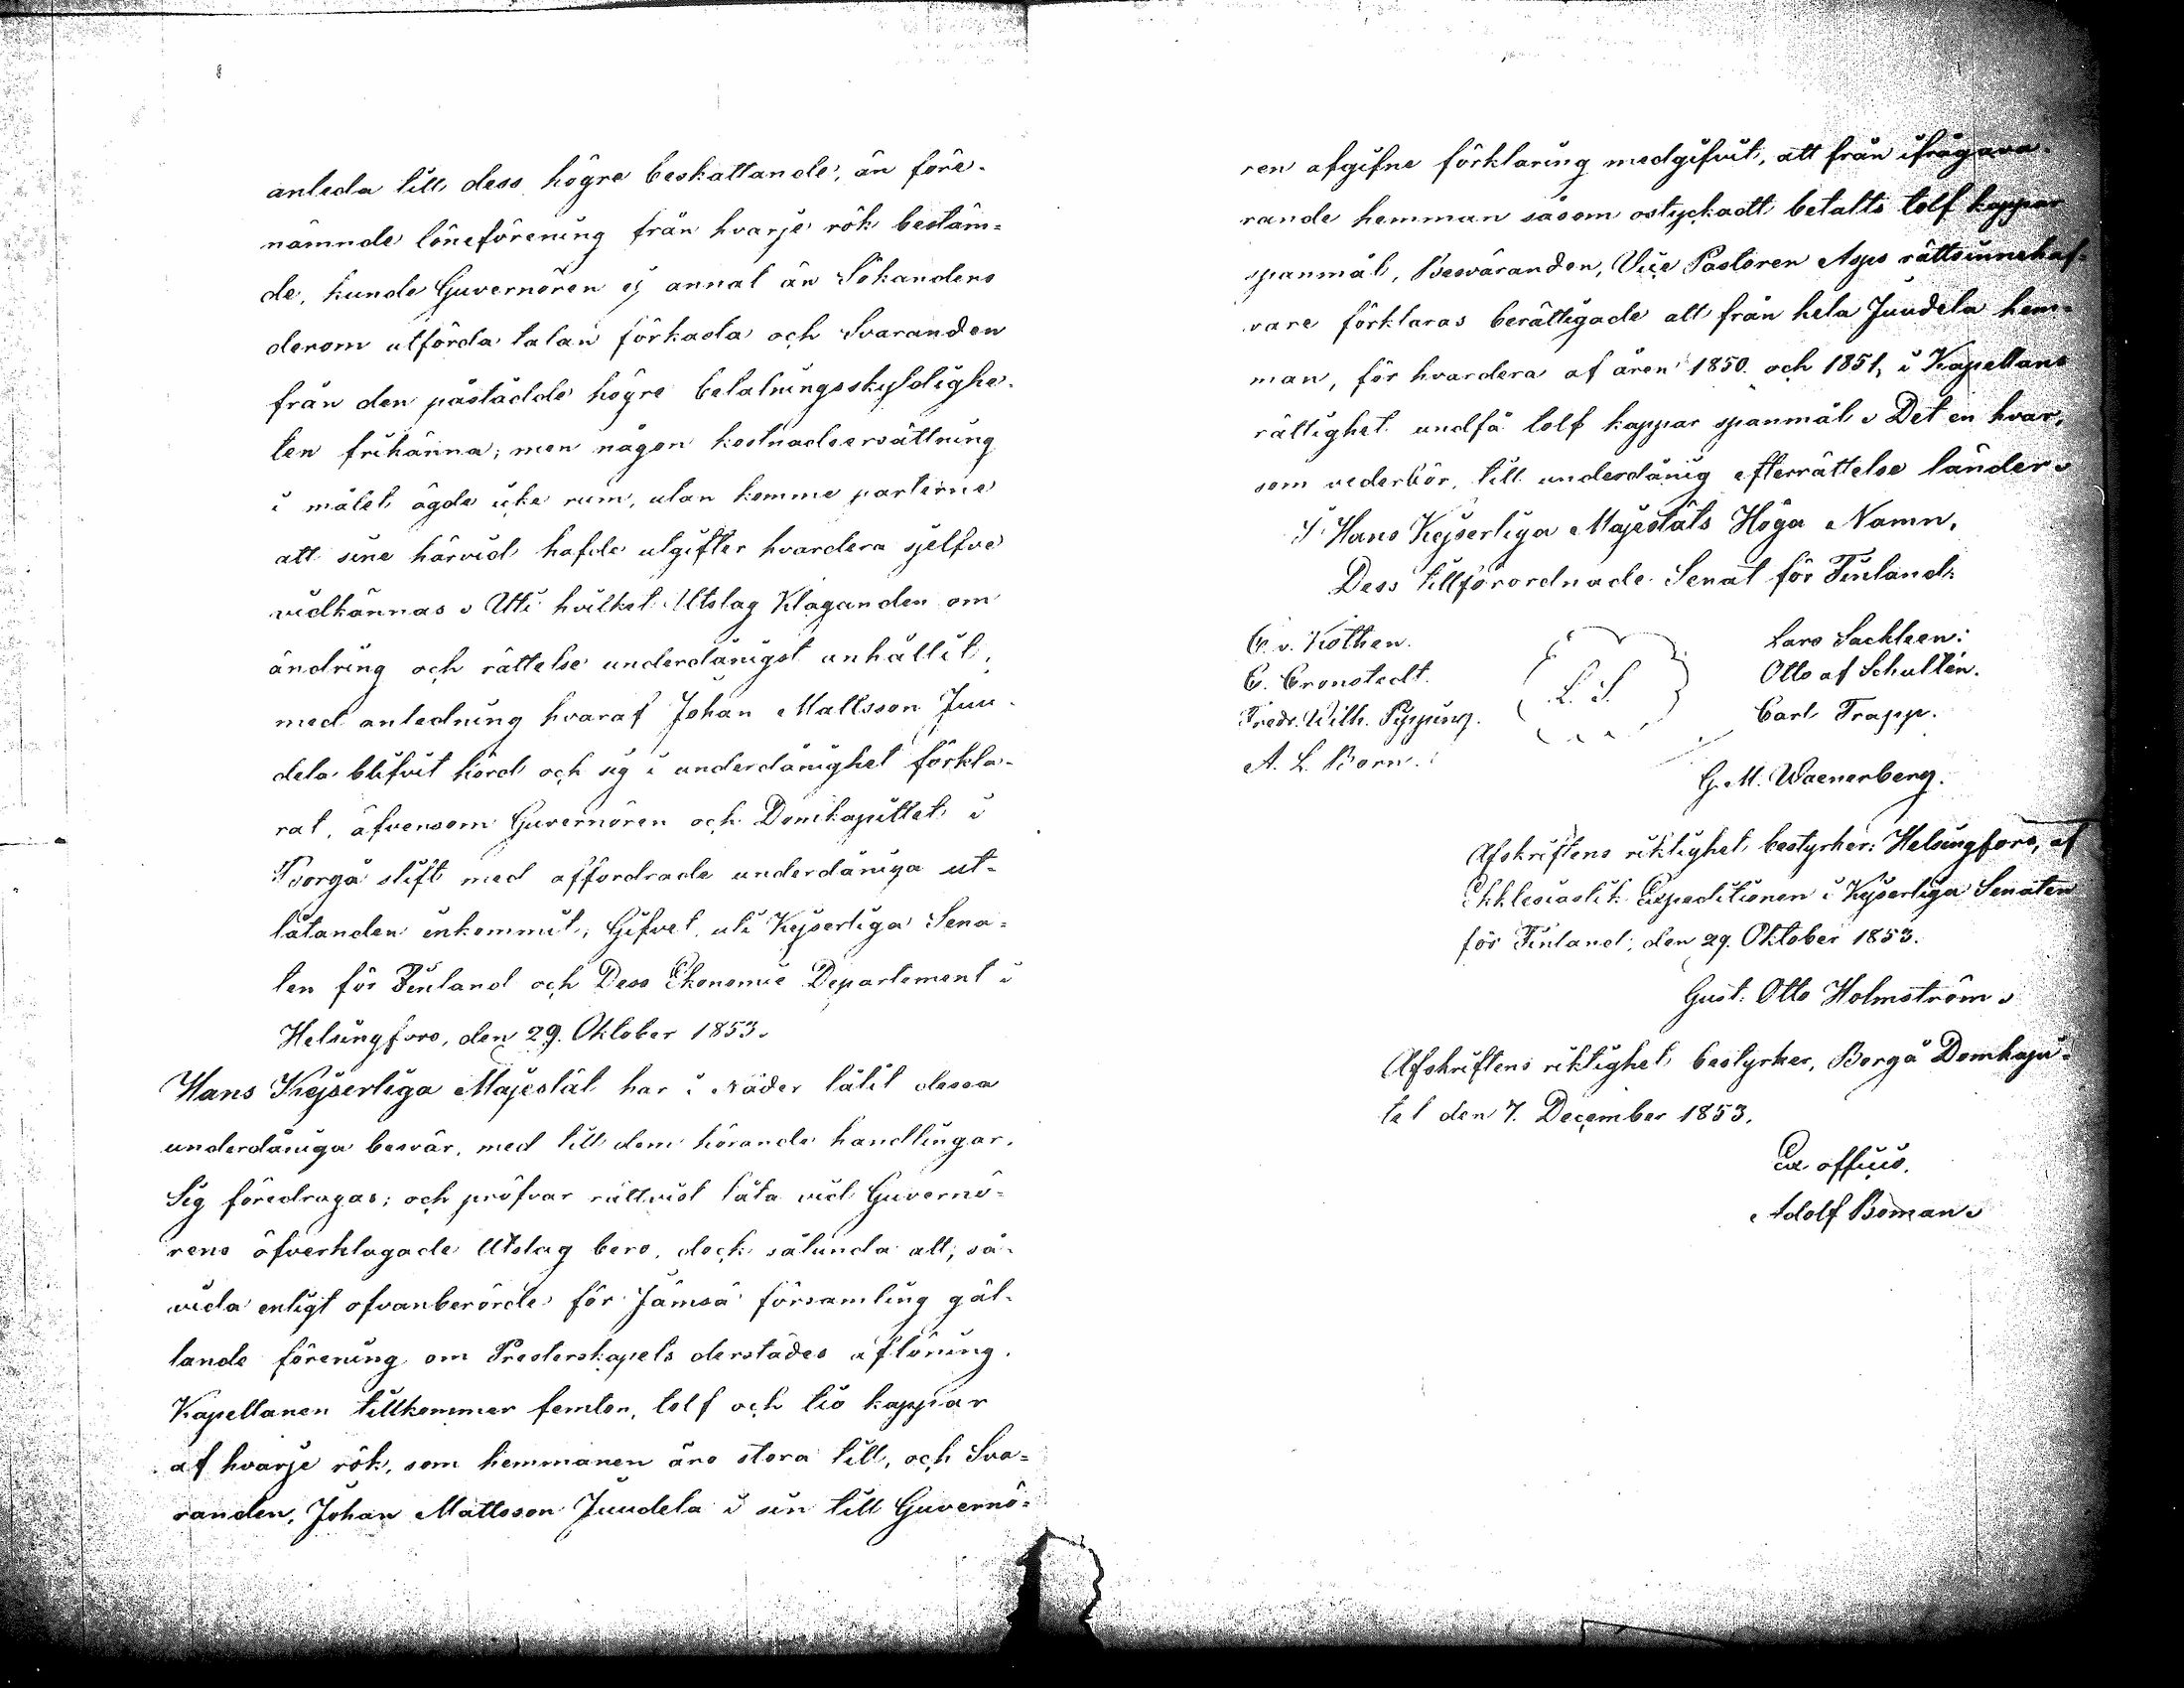 anleda till dess högre beskattande, än före-
nämnde löneförening från hvarje rök bestäm-
de, kunde Guvernören ej annat än Sökandens
derom utförda talan förkasta och Svaranden
från den påstådde högre betalningsskyldighe-
ten frikänna; men någon kostnadsersättning
i målet ägde icke rum, utan komme parterne
att sine härvid hafde utgifter hvardera sjelfve
vidkännas. Uti hvilket Utslag Klaganden om
ändring och rättelse underdånigst anhållit;
med anledning hvaraf Johan Mattsson Juu-
dela blifvit hörd och sig i underdånighet förkla-
rat, äfvensom Guvernören och Domkapitlet i
Borgå stift med affordrade underdåniga ut-
låtanden inkommit; Gifvet uti Kejserliga Sena-
ten för Finland och Dess Ekonomie Departement i
Helsingfors, den 29. Oktober 1853.
Hans Kejserliga Majestät har i Nåder låtit dessa
underdåniga besvär, med till dem hörande handlingar,
Sig föredragas; och pröfvar rättvist låta vid Guvernö-
rens öfverklagade Utslag bero, dock sålunda att, så-
vida enligt ofvanberörde för Jämsä församling gäl-
lande förening om Presterskapets derstädes aflöning,
Kapellanen tillkommer femton, tolf och tio kappar
af hvarje rök, som hemmanen äro stora till, och Sva-
randen, Johan Mattsson Juudela i sin till Guvernö-
ren afgifne förklaring medgifvit, att från ifrågava-
rande hemman såsom ostyckadt betalts tolf kappar
spanmål, Besväranden, Vice Pastoren Asps rättsinnehaf-
vare förklaras berättigade att från hela Juudela hem-
man, för hvardera af åren 1850 och 1851, i Kapellans
rättighet undfå tolf kappar spanmål. Det en hvar,
som vederbör, till underdånig efterrättelse länder.
I Hans Kejserliga Majestäts Höga Namn,
Dess tillförordnade Senat för Finland:
C. v. Kothen.
Lars Sackleen.
C. Cronstedt.
L. S.
Otto af Schultén.
Fredr. Wilh. Pipping.
Carl Trapp.
A. L. Born.
G. M. Waenerberg.
Afskriftens riktighet bestyrker: Helsingfors, af
Ekklesiastik Expeditionen i Kejserliga Senaten
för Finland, den 29. Oktober 1853.
Gust. Otto Holmström.
Afskriftens riktighet bestyrker, Borgå Domkapi-
tel den 7. December 1853.
Ex officio,
Adolf Boman.